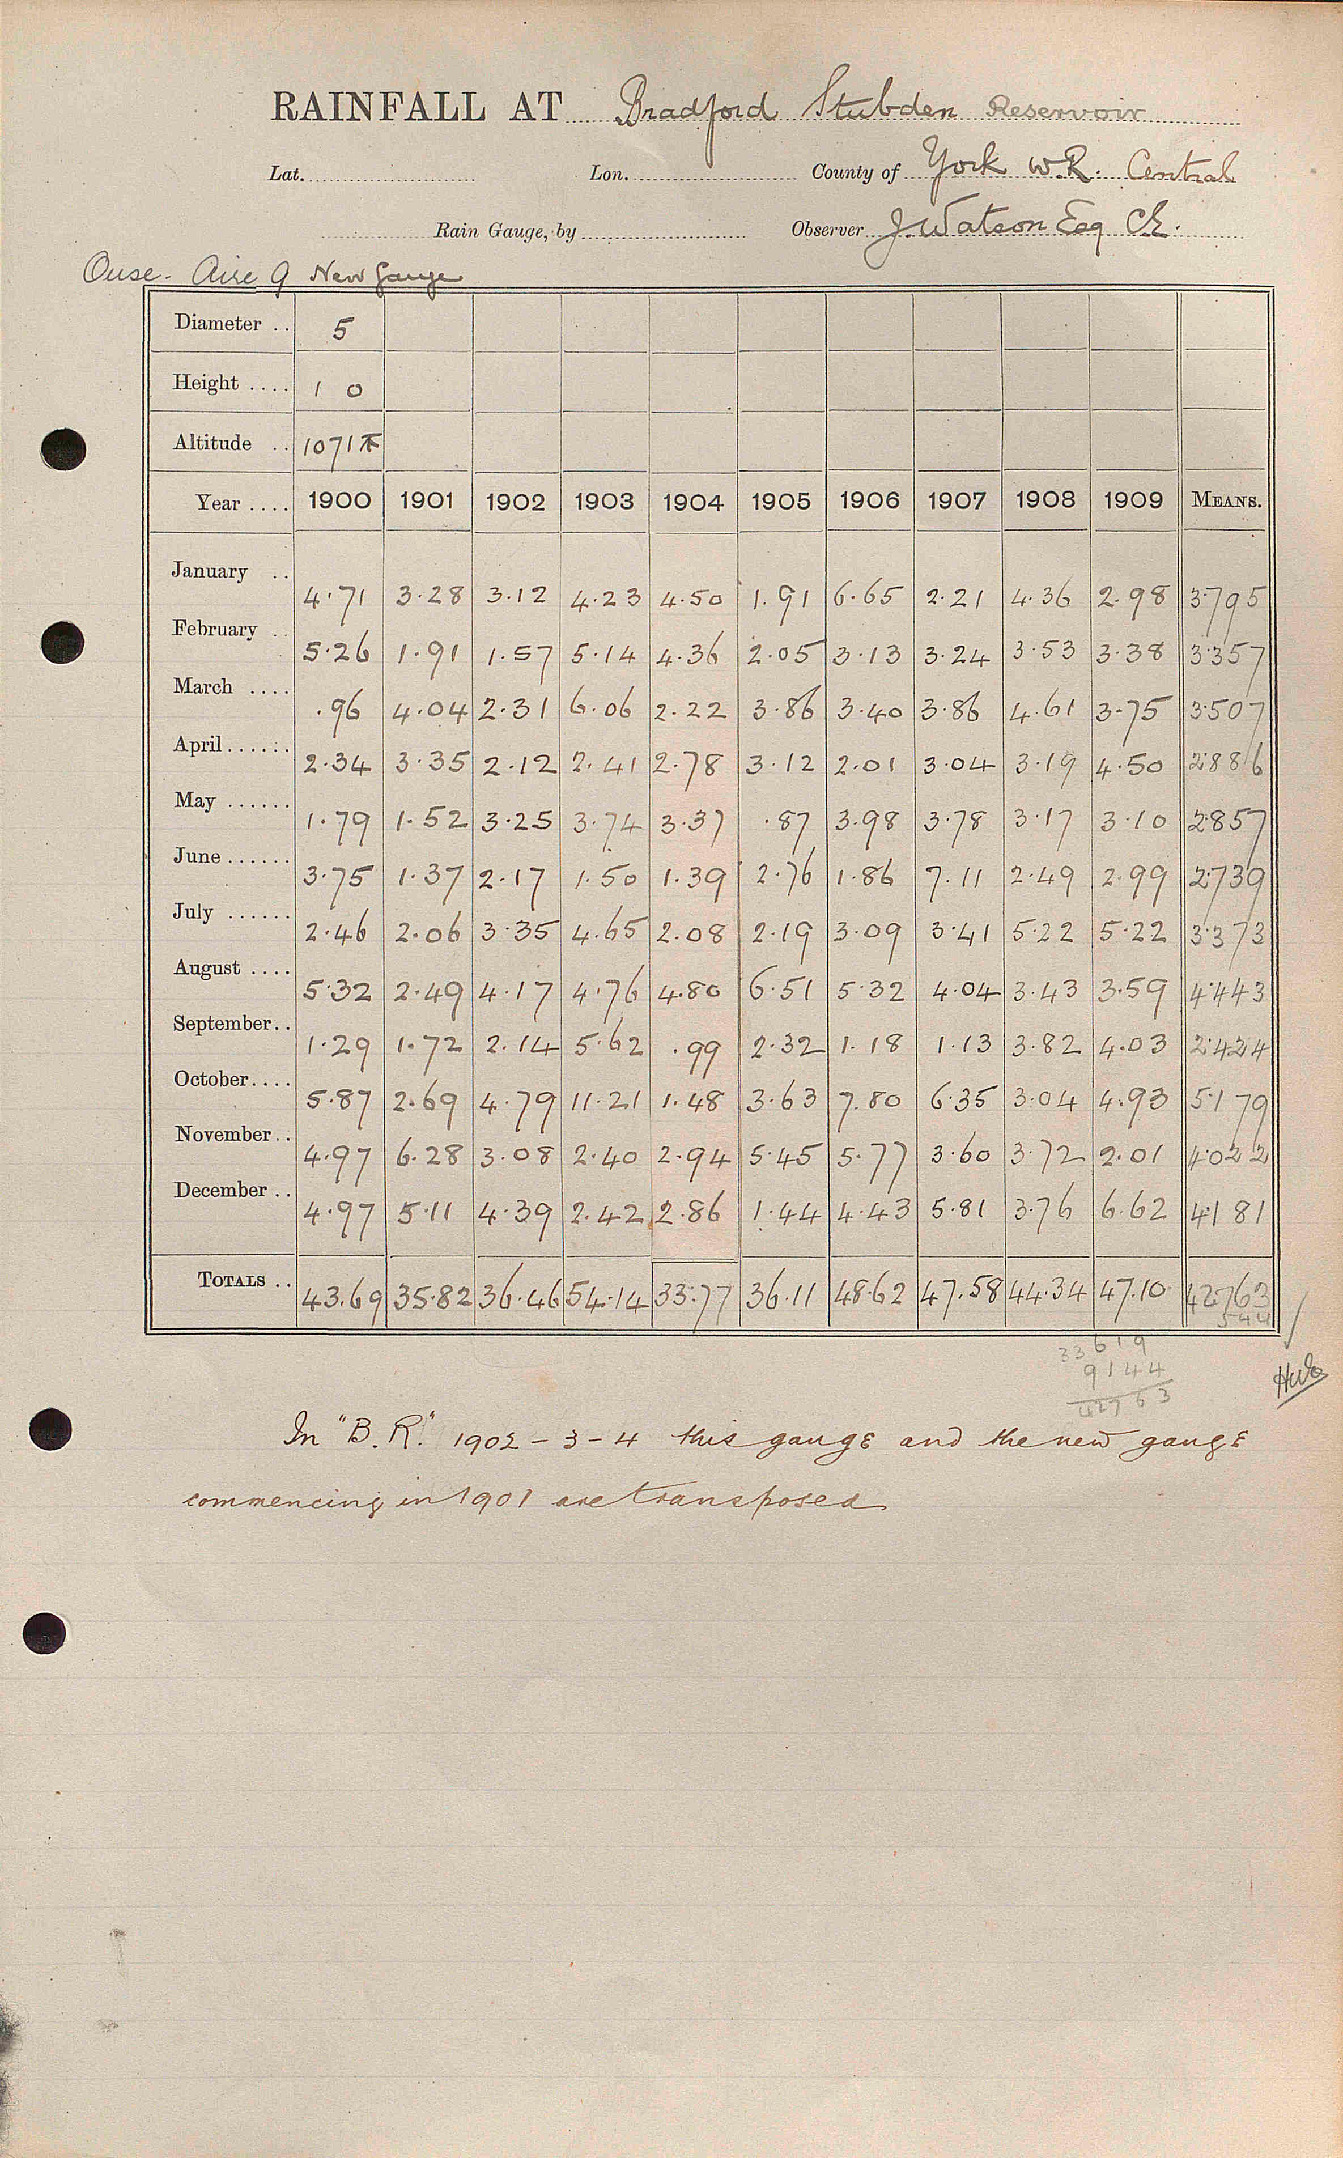 RAINFALL AT Bradford Stubden Reservoir
Lat. Lon. County of York W.R. Central
Rain Gauge, by Observer J. Watson Esq CE.
Ouse - Aire 9 New Gauge
Diameter .. 5
Height .... 1 0
Altitude .. 1071
Year .... 1900 1901 1902 1903 1904 1905 1906 1907 1908 1909 MEANS.
January .. 4.71 3.28 3.12 4.23 4.50 1.91 6.65 2.21 4.36 2.98 3.795
February .. 5.26 1.91 1.57 5.14 4.36 2.05 3.13 3.24 3.53 3.38 3.357
March .... .96 4.04 2.31 6.06 2.22 3.86 3.40 3.86 4.61 3.75 3.507
April...... 2.34 3.35 2.12 2.41 2.78 3.12 2.01 3.04 3.19 4.50 2.886
May ...... 1.79 1.52 3.25 3.74 3.37 .87 3.98 3.78 3.17 3.10 2.857
June ...... 3.75 1.37 2.17 1.50 1.39 2.76 1.86 7.11 2.49 2.99 2.739
July ...... 2.46 2.06 3.35 4.65 2.08 2.19 3.09 3.41 5.22 5.22 3.373
August .... 5.32 2.49 4.17 4.76 4.80 6.51 5.32 4.04 3.43 3.59 4.443
September.. 1.29 1.72 2.14 5.62 .99 2.32 1.18 1.13 3.82 4.03 2.424
October.... 5.87 2.69 4.79 11.21 1.48 3.63 7.80 6.35 3.04 4.93 5.179
November.. 4.97 6.28 3.08 2.40 2.94 5.45 5.77 3.60 3.72 2.01 4.022
December .. 4.97 5.11 4.39 2.42 2.86 1.44 4.43 5.81 3.76 6.62 4.181
TOTALS .. 43.69 35.82 36.46 54.14 33.77 36.11 48.62 47.58 44.34 47.10 42.763
33619
9144
42763
In "B.R." 1902-3-4 this gauge and the new gauge
commencing in 1901 are transposed